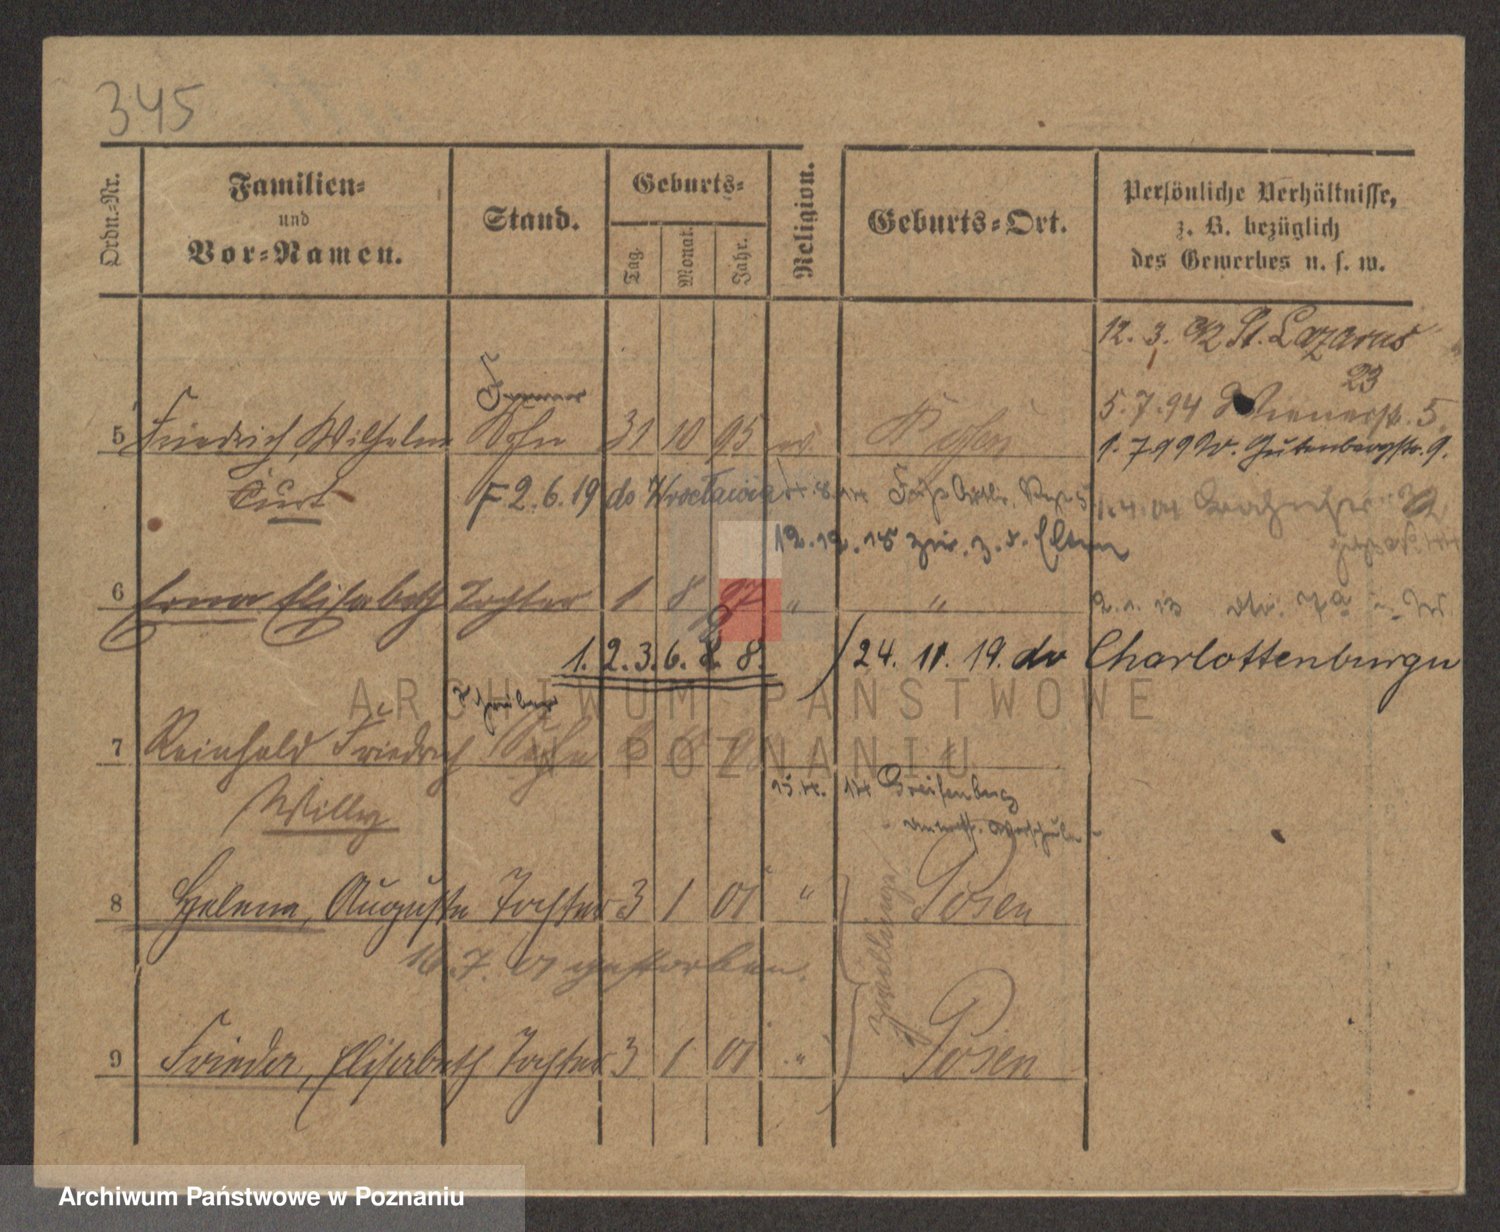 345
Ordn.-Nr.
Familien-
und
Vor-Namen.
Stand.
Geburts-
Tag.
Monat.
Jahr.
Religion.
Geburts-Ort.
Persönliche Verhältnisse,
z. B. bezüglich
des Gewerbes u. s. w.
12. 3. 92 St. Lazarus
23
5. 7. 94 Wienerstr. 5.
1. 7. 99 W. Gutenbergstr. 9.
5 Friedrich Wilhelm Sohn 31 10 95 ev. Posen
Curt
F 2. 6. 19 do Wrocławia
12. 12. 18 zur. z. d. Eltern
6 Erna Elisabeth Tochter 1 8 97 " "
1. 2. 3. 6. 7. 8.
24. 11. 19. do Charlottenburgu
7 Reinhold Friedrich Sohn
Willy
Greifenberg
8 Helene, Auguste Tochter 3 1 01 " Posen
16. 7. 01 gestorben.
Zwillinge
9 Frieda, Elisabeth Tochter 3 1 01 " Posen
ARCHIWUM PAŃSTWOWE
W POZNANIU
Archiwum Państwowe w Poznaniu